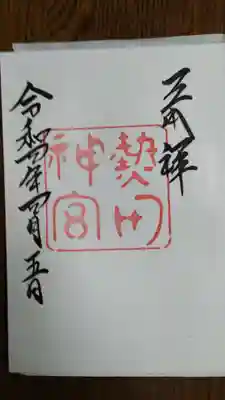 熱田
神宮
令和四年四月五日